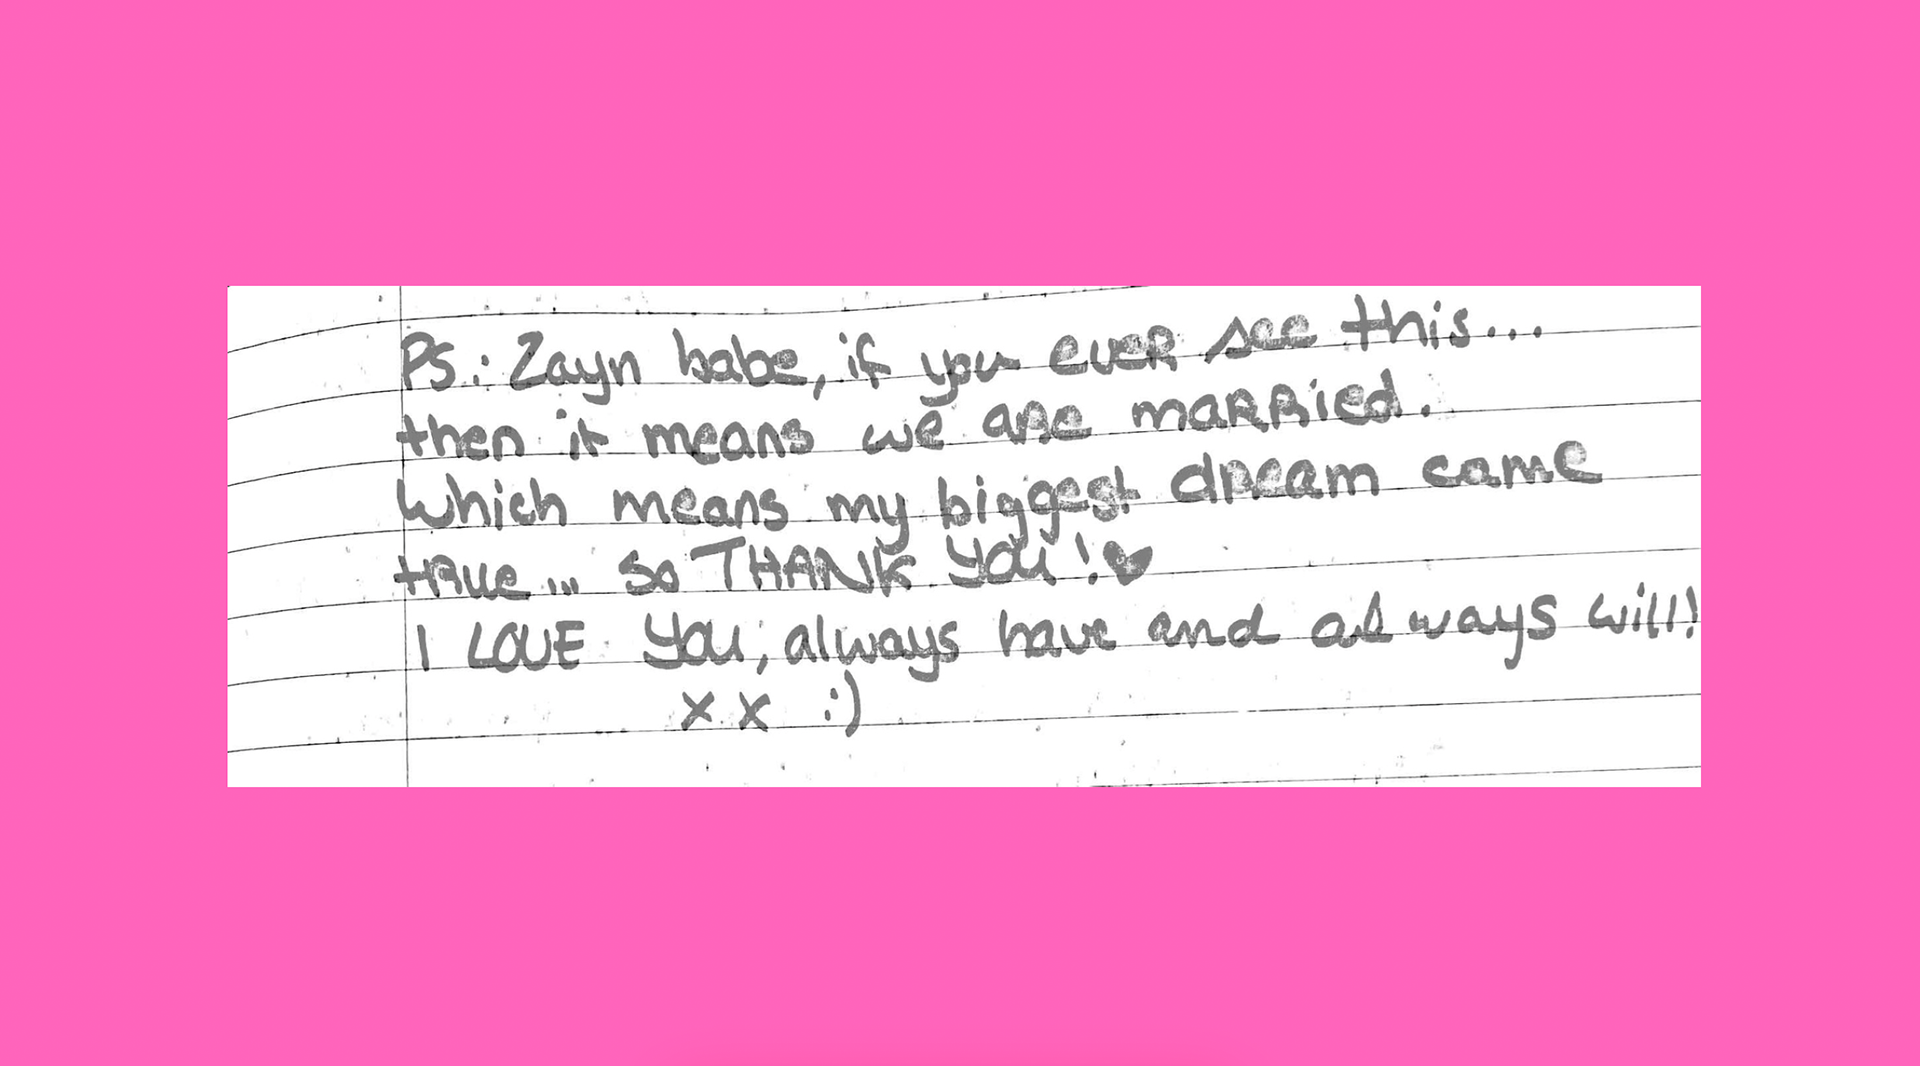 PS.: Zayn babe, if you ever see this...
then it means we are married.
Which means my biggest dream came
true... so THANK YOU! ♥
I LOVE You, always have and always will!
x x :)